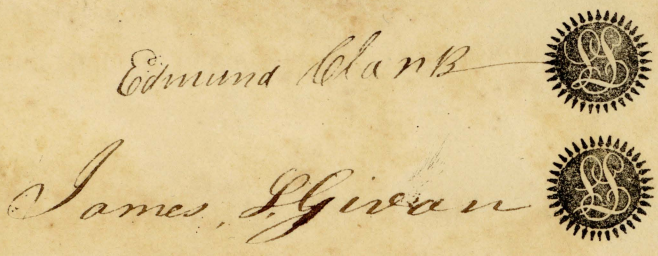 Edmund Clark LS
James, S. Givan LS